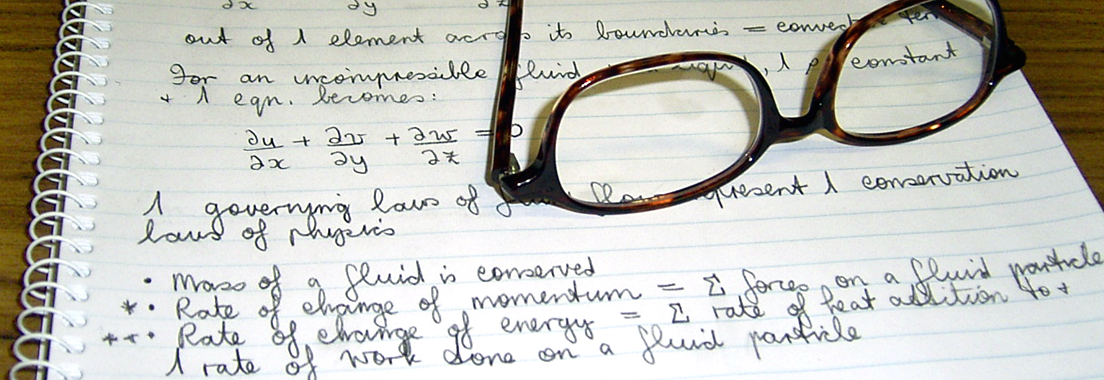 ∂x ∂y ∂z
out of 1 element across its boundaries = convect term
For an incompressible fluid 1 ρ constant
+ 1 eqn. becomes:
∂u/∂x + ∂v/∂y + ∂w/∂z = 0
1 governing laws of flow 1 conservation
laws of physics
• Mass of a fluid is conserved
*• Rate of change of momentum = Σ forces on a fluid particle
*+• Rate of change of energy = Σ rate of heat addition to +
1 rate of work done on a fluid particle